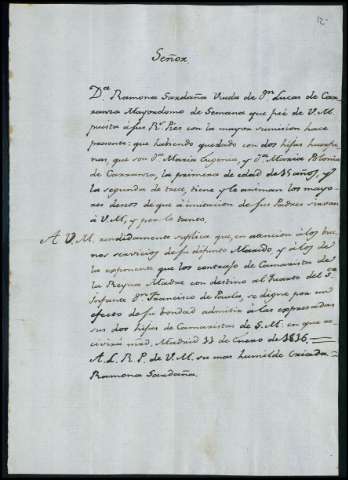 Señor
D.ª Ramona Sardaña Viuda de D.n Lucas de Car-
ranza Mayordomo de Semana que fué de V. M.
puesta á sus R.s Pies con la mayor sumision hace
presente: que habiendo quedado con dos hijas huerfa-
nas, que son D.ª Maria Eugenia, y D.ª Maria Polonia
de Carranza, la primera de edad de 15 años, y
la segunda de trece, tiene y le animan los mayo-
res deseos de que á imitacion de sus Padres sirvan
á V. M, y por lo tanto,
A V. M. rendidamente suplica que, en atencion á los bue-
nos servicios de su difunto Marido y á los de
la exponente que los contrajo de Camarista de
la Reyna Madre con destino al Quarto del S.r
Infante D.n Francisco de Paula, se digne por un
efecto de su bondad admitir á las expresadas
sus dos hijas de Camaristas de S. M. en que re-
civirá mrd. Madrid 11 de Enero de 1816.
A. L. R. P. de V. M. su mas humilde Criada
Ramona Sardaña.